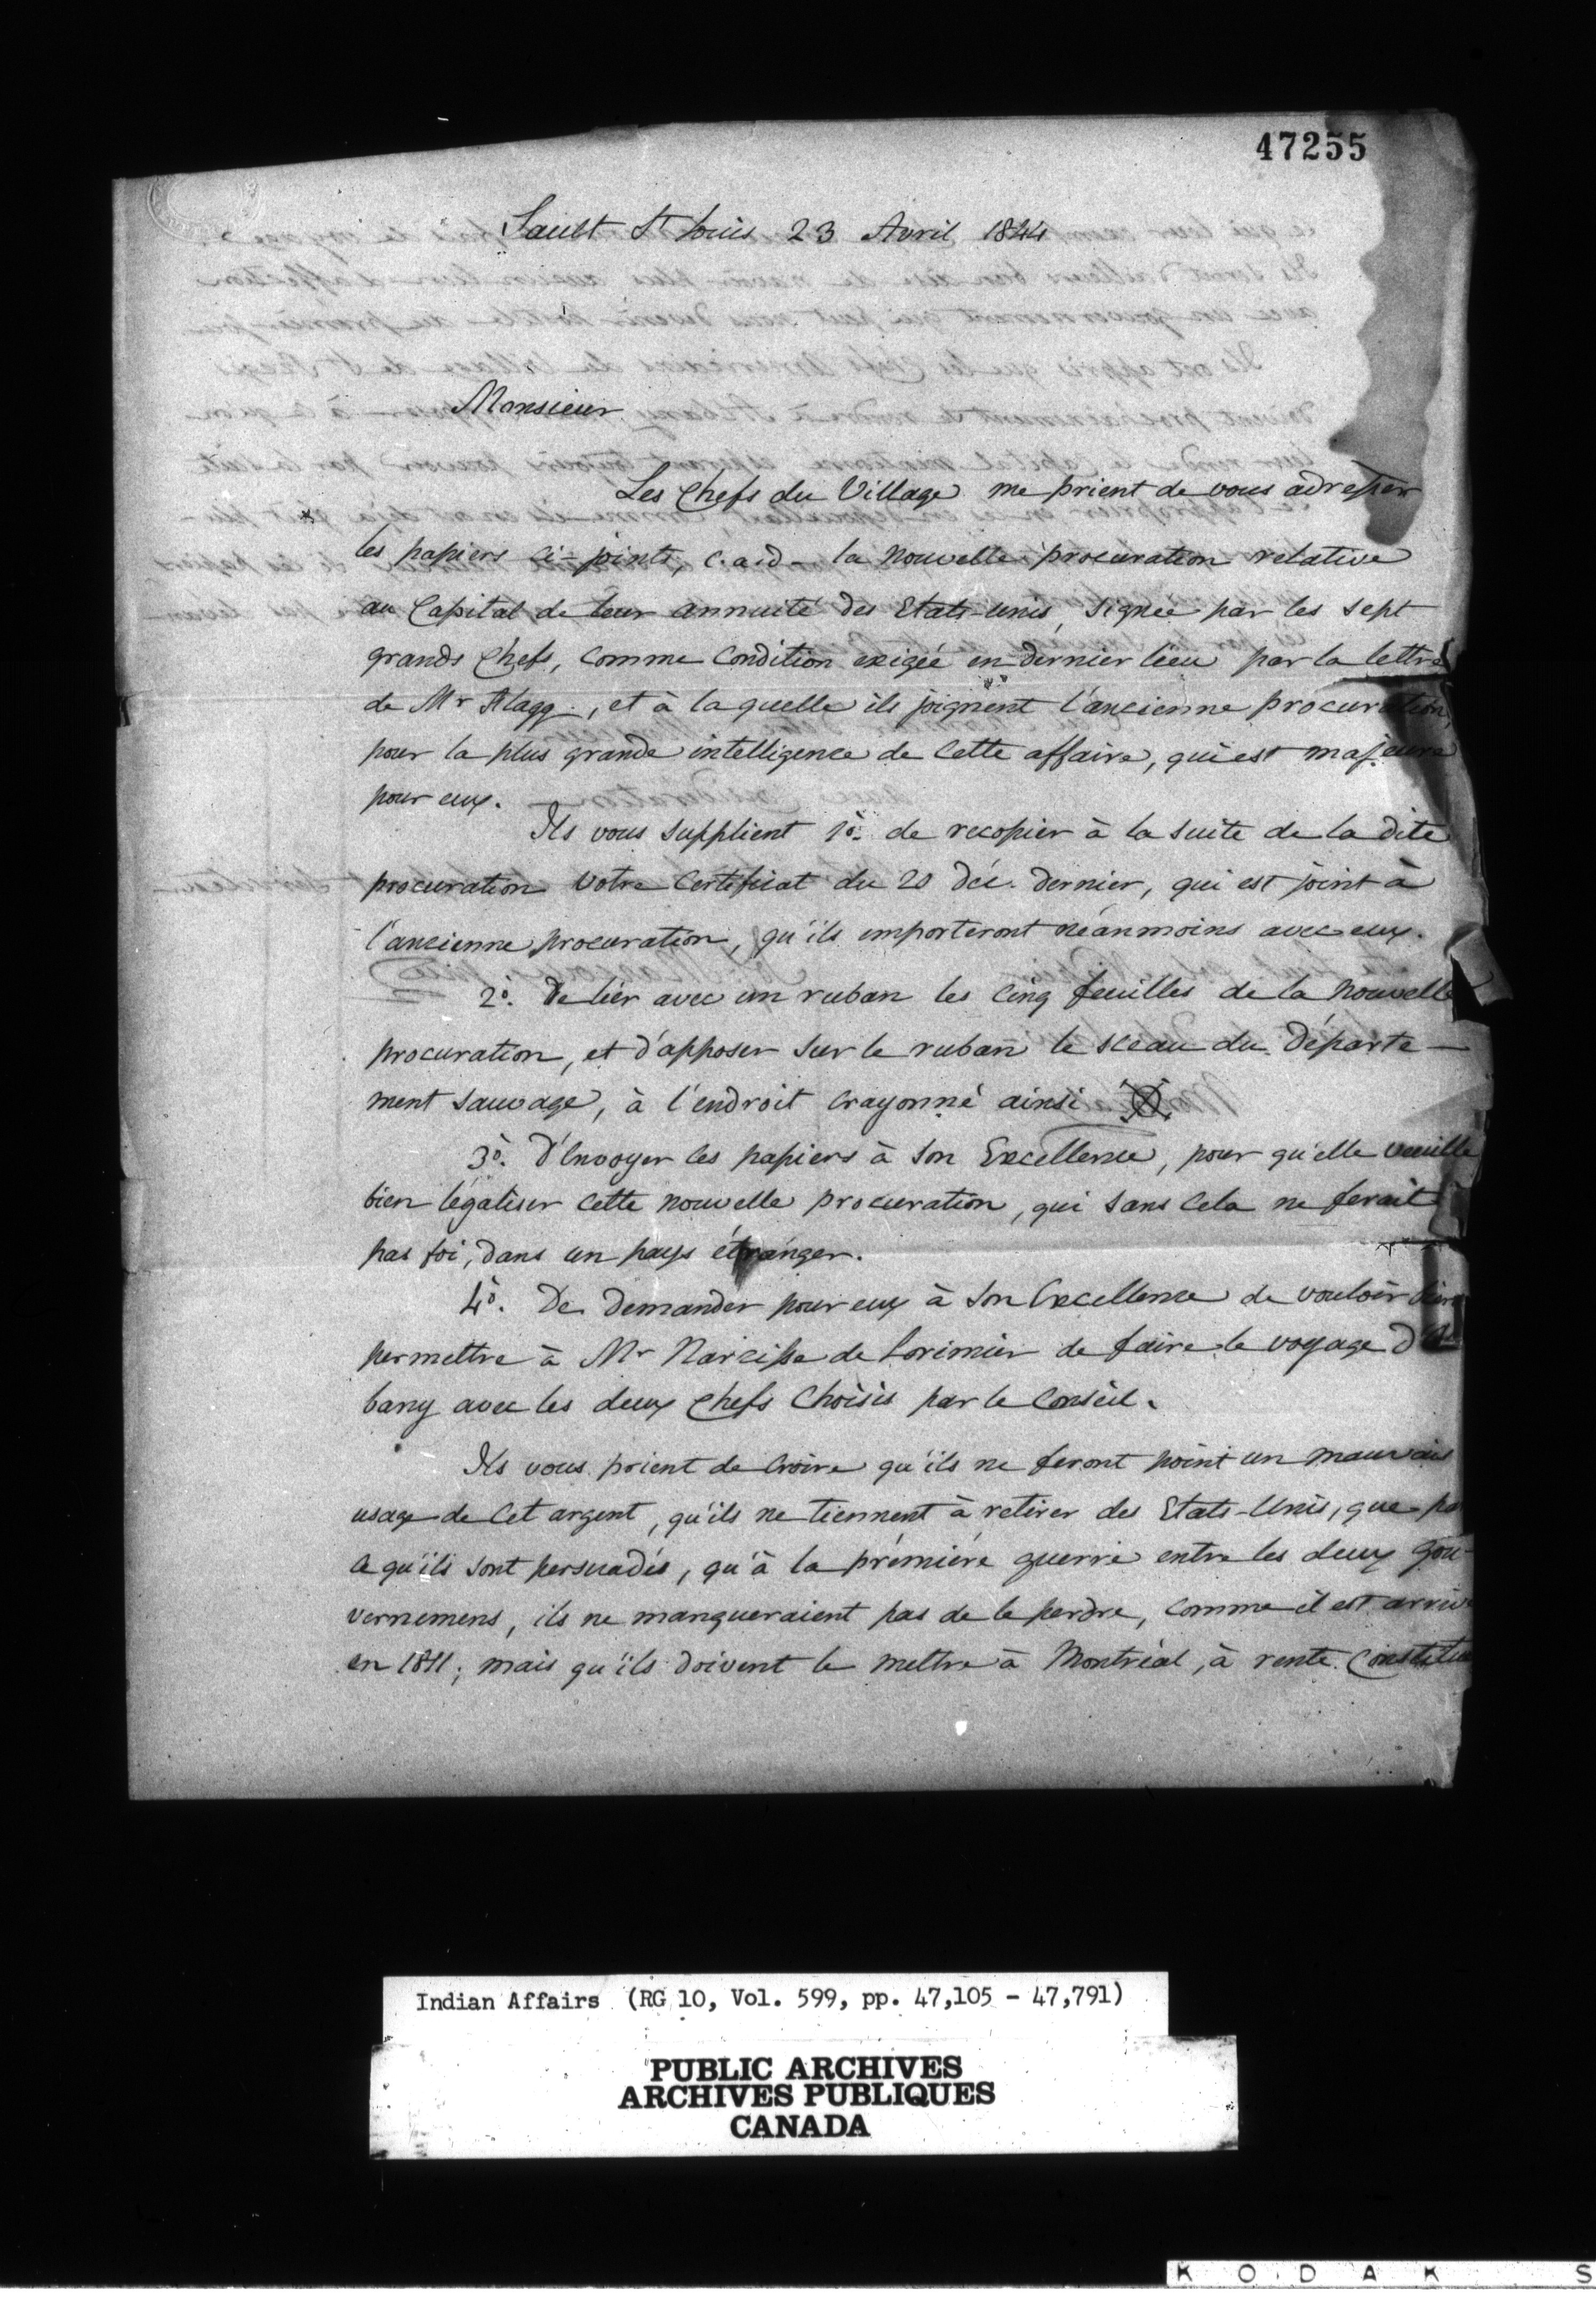 47255
Sault St Louis 23 Avril 1844
Monsieur
Les Chefs du Village me prient de vous adresser
les papiers ci-joints, c.a.d - la nouvelle procuration relative
au Capital de leur annuité des Etats-unis, signée par les sept
grands Chefs, comme condition exigée en dernier lieu par la lettre
de Mr Flagg., et à laquelle ils joignent l'ancienne procuration,
pour la plus grande intelligence de cette affaire, qui est majeure
pour eux.
Ils vous supplient 1o. de recopier à la suite de la dite
procuration votre certificat du 20 déc. dernier, qui est joint à
l'ancienne procuration, qu'ils emporteront néanmoins avec eux.
2o. De lier avec un ruban les cinq feuilles de la nouvelle
procuration, et d'apposer sur le ruban le sceau du Départe-
ment sauvage, à l'endroit crayonné ainsi
3o. D'envoyer les papiers à Son Excellence, pour qu'elle veuille
bien légaliser cette nouvelle procuration, qui sans cela ne ferait
pas foi, dans un pays étranger.
4o. De demander pour eux à Son Excellence de vouloir bien
permettre à Mr Narcisse de Lorimier de faire le voyage d'Al
bany avec les deux Chefs choisis par le Conseil.
Ils vous prient de croire qu'ils ne feront point un mauvais
usage de cet argent, qu'ils ne tiennent à retirer des Etats-Unis, que pa
ce qu'ils sont persuadés, qu'à la première guerre entre les deux gou-
vernemens, ils ne manqueraient pas de le perdre, comme il est arrivé
en 1811; mais qu'ils doivent le mettre à Montréal, à rente constitu
Indian Affairs (RG 10, Vol. 599, pp. 47,105 - 47,791)
PUBLIC ARCHIVES
ARCHIVES PUBLIQUES
CANADA
KODAK S